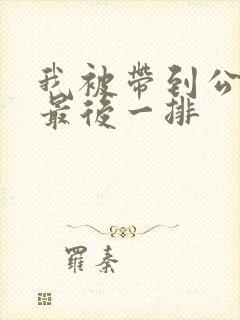 我被帶到公
最後一排
羅秦